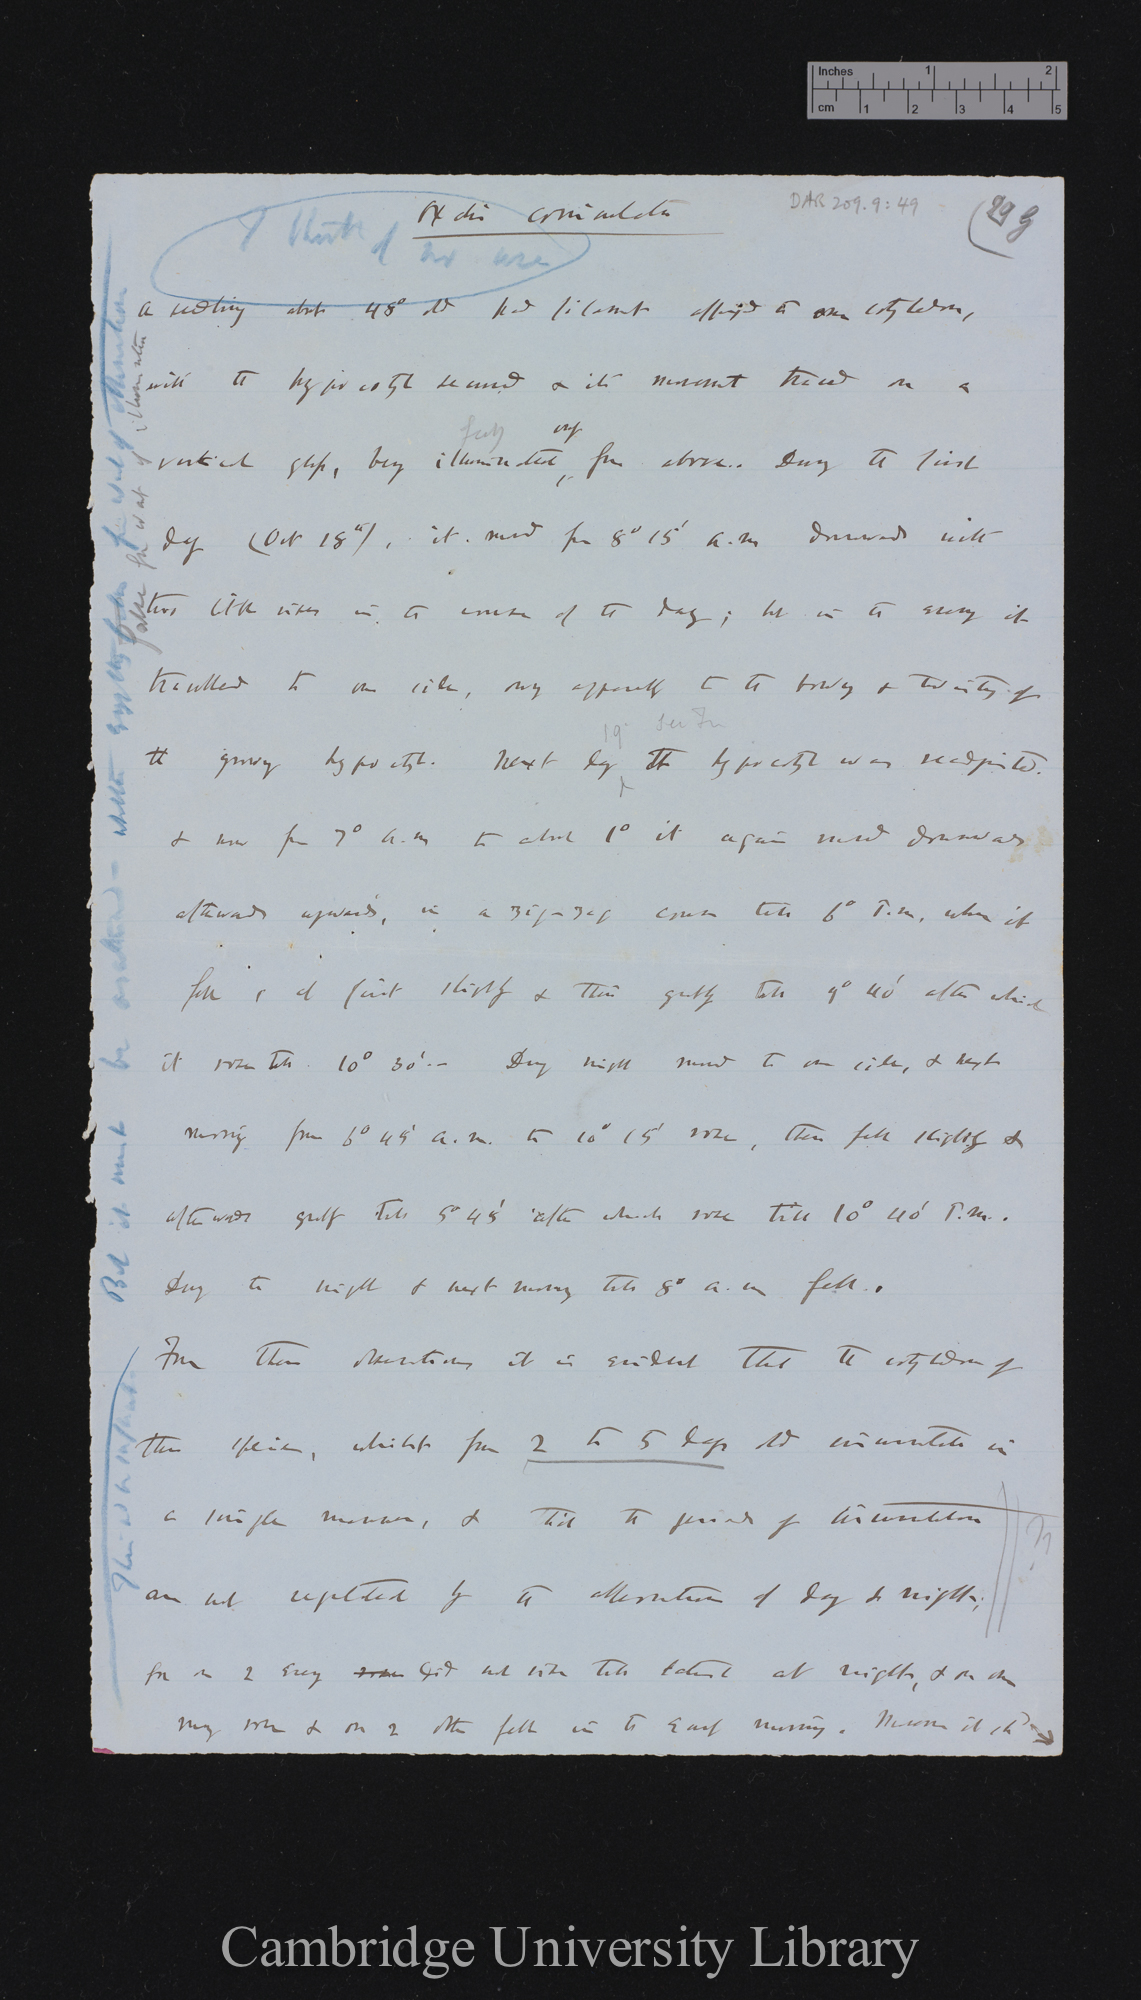 Inches 1 2
cm 1 2 3 4 5
DAR 209.9:49
29 G
Oxalis corniculata
I think of no use
A seedling about 48° old had filament affixed to one cotyledon,
with the hypocotyl secured & its movement traced on a
vertical glass, being illuminated, from above. During the first
day (Oct 18th), it moved from 8° 15' a.m downwards with
two little rises in the course of the day; but in the evening it
travelled to one side, owing apparently to the bowing & twisting of
19
the growing hypocotyl. Next day the hypocotyl was readjusted.
& now from 7° a.m to about 1° it again moved downwards
afterwards upwards, in a zig-zag course till 6° P.m, when it
fell at first slightly & then greatly till 9° 40' after which
it rose till 10° 30'.— During night moved to one side, & next
morning from 6° 45' a.m. to 10° 15' rose, then fell slightly &
afterwards greatly till 5° 45' after which rose till 10° 40' P.m..
During the night & next morning till 8° a.m fell.
From these observations it is evident that the cotyledons of
this species, whilst from 2 to 5 days old circumnutate in
a simple manner, & that the periods of circumnutation
are not regulated by the alternation of day & night;
for on 2 evenings did not rise till late at night, & on one
morning rose & on 2 others fell in the early morning. Moreover it
But it must be